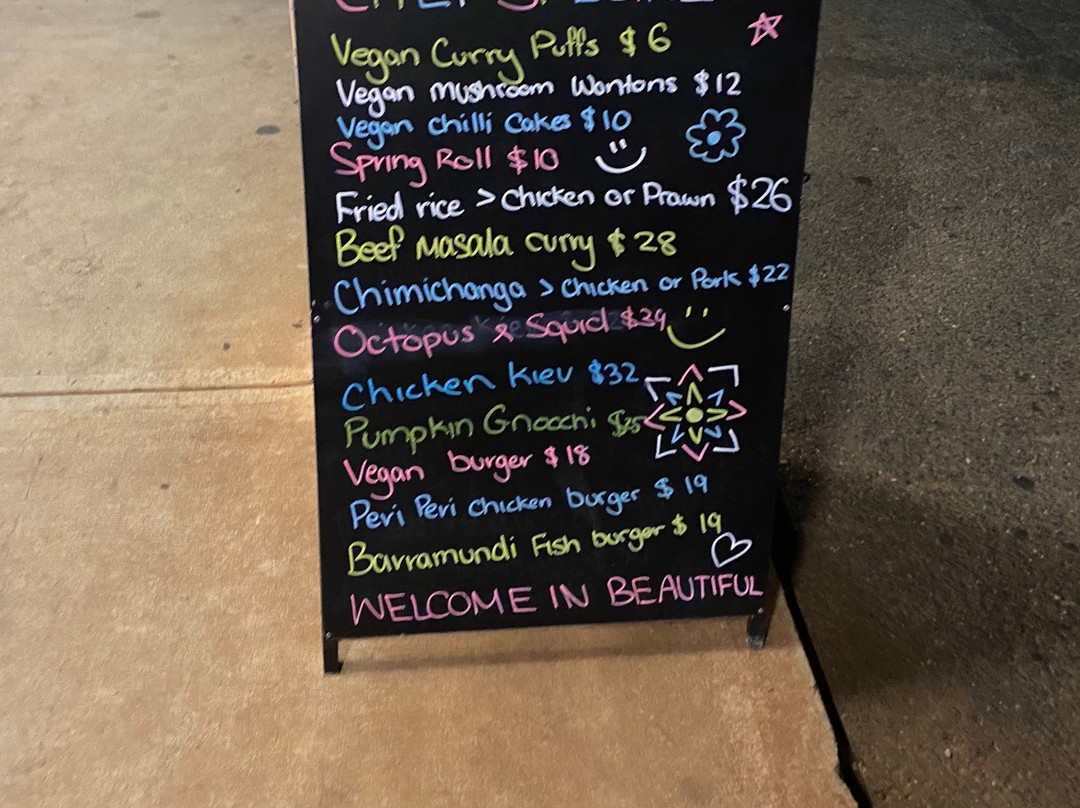 CHEF SPECIAL
Vegan Curry Puffs $6
Vegan mushroom Wontons $12
Vegan chilli Cakes $10
Spring Roll $10
Fried rice > Chicken or Prawn $26
Beef Masala curry $28
Chimichanga > Chicken or Pork $22
Octopus & Squid $29
Chicken Kiev $32
Pumpkin Gnocchi $25
Vegan burger $18
Peri Peri Chicken burger $19
Barramundi Fish burger $19
WELCOME IN BEAUTIFUL